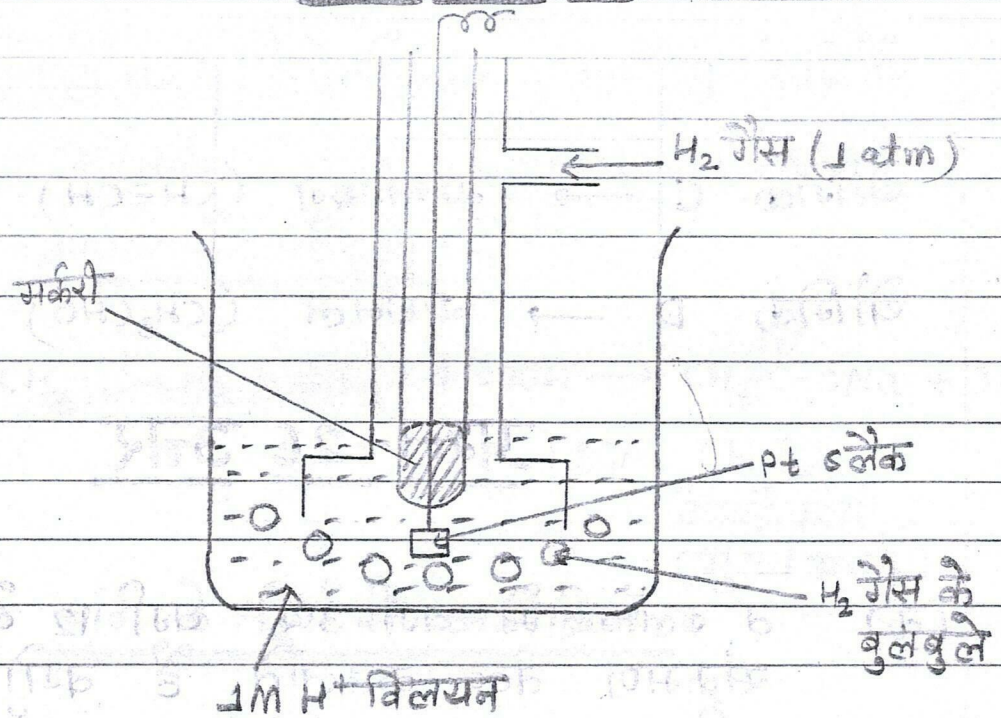 H₂ गैस (1 atm)
मर्करी
Pt ब्लैक
H₂ गैस के
बुलबुले
1M H⁺ विलयन